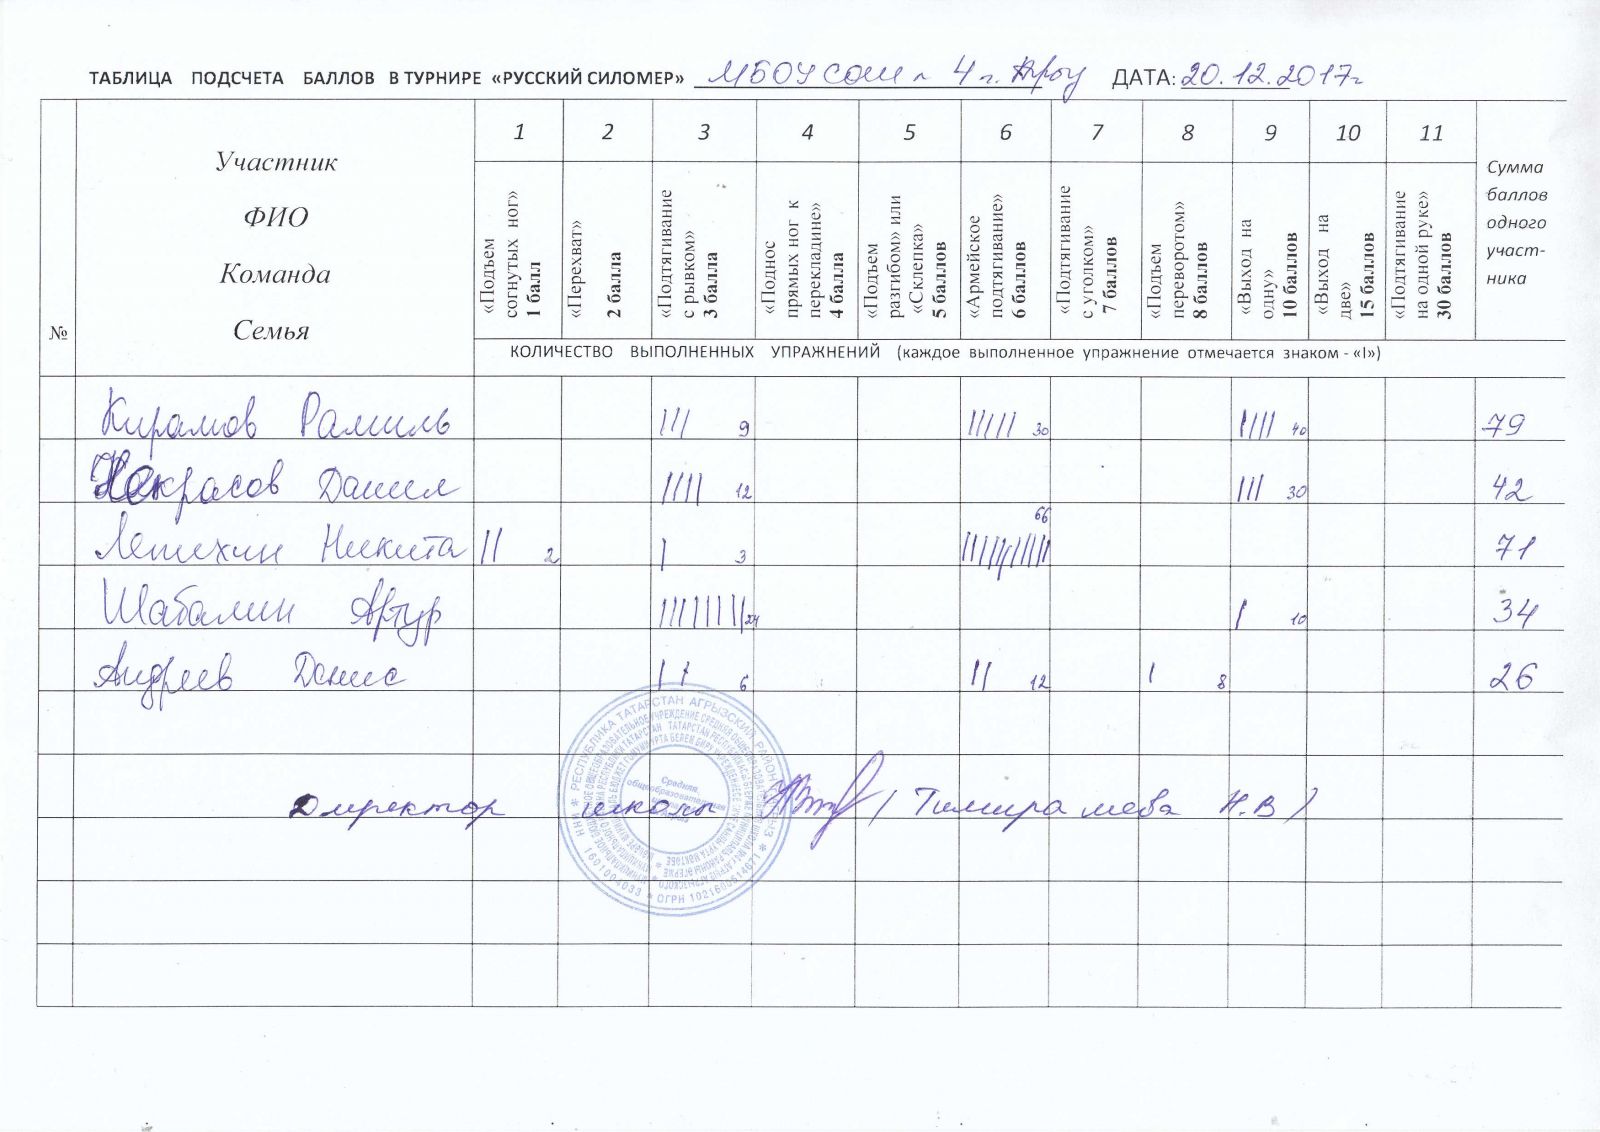 ТАБЛИЦА ПОДСЧЕТА БАЛЛОВ В ТУРНИРЕ «РУССКИЙ СИЛОМЕР» МБОУ СОШ 4 г. ДАТА: 20.12.2017г
№
Участник
ФИО
Команда
Семья
1 2 3 4 5 6 7 8 9 10 11
«Подъем согнутых ног» 1 балл
«Перехват» 2 балла
«Подтягивание с рывком» 3 балла
«Поднос прямых ног к перекладине» 4 балла
«Подъем разгибом» или «Склепка» 5 баллов
«Армейское подтягивание» 6 баллов
«Подтягивание с уголком» 7 баллов
«Подъем переворотом» 8 баллов
«Выход на одну» 10 баллов
«Выход на две» 15 баллов
«Подтягивание на одной руке» 30 баллов
Сумма
баллов
одного
участ-
ника
КОЛИЧЕСТВО ВЫПОЛНЕННЫХ УПРАЖНЕНИЙ (каждое выполненное упражнение отмечается знаком - «I»)
Кирамов Рамиль III 9 IIIII 30 IIII 40 79
Некрасов Данил IIII 12 III 30 42
Лепихин Никита II 2 I 3 IIIIIIIIIII 66 71
Шабалин Артур IIIIIIII 24 I 10 34
Андреев Денис II 6 II 12 I 8 26
Директор школы (Н.В)
РЕСПУБЛИКА ТАТАРСТАН АГРЫЗСКИЙ РАЙОН
Средняя
общеобразовательная
ОГРН 1021600514671
1601004033